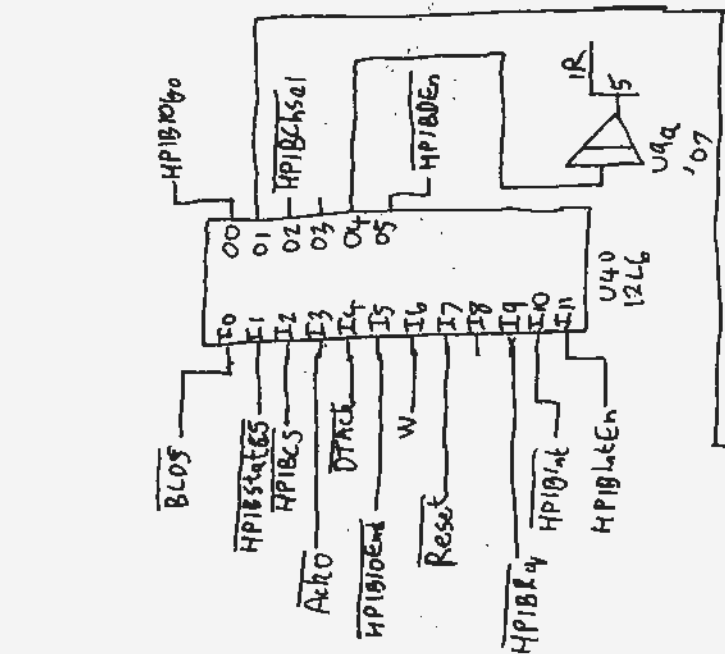 HPIBIOGo
HPIBChSel
HPIBDEn
IR
5
U9a
'07
O0
O1
O2
O3
O4
O5
I0
I1
I2
I3
I4
I5
I6
I7
I8
I9
I10
I11
U40
12L6
BLDS
HPIBStatGS
HPIBCS
Ack0
DTAck
HPIBIOEnd
W
Reset
HPIBRq
HPIBInt
HPIBIntEn